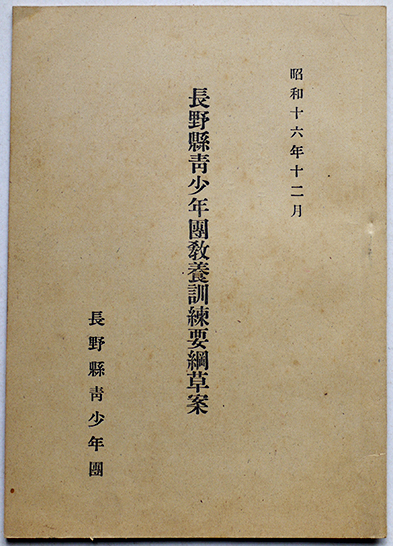 昭和十六年十二月
長野縣靑少年團敎養訓練要綱草案
長野縣靑少年團